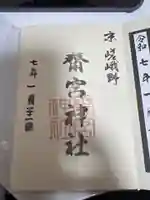 令和七年一
京嵯峨野
齋宮神社
七年一月